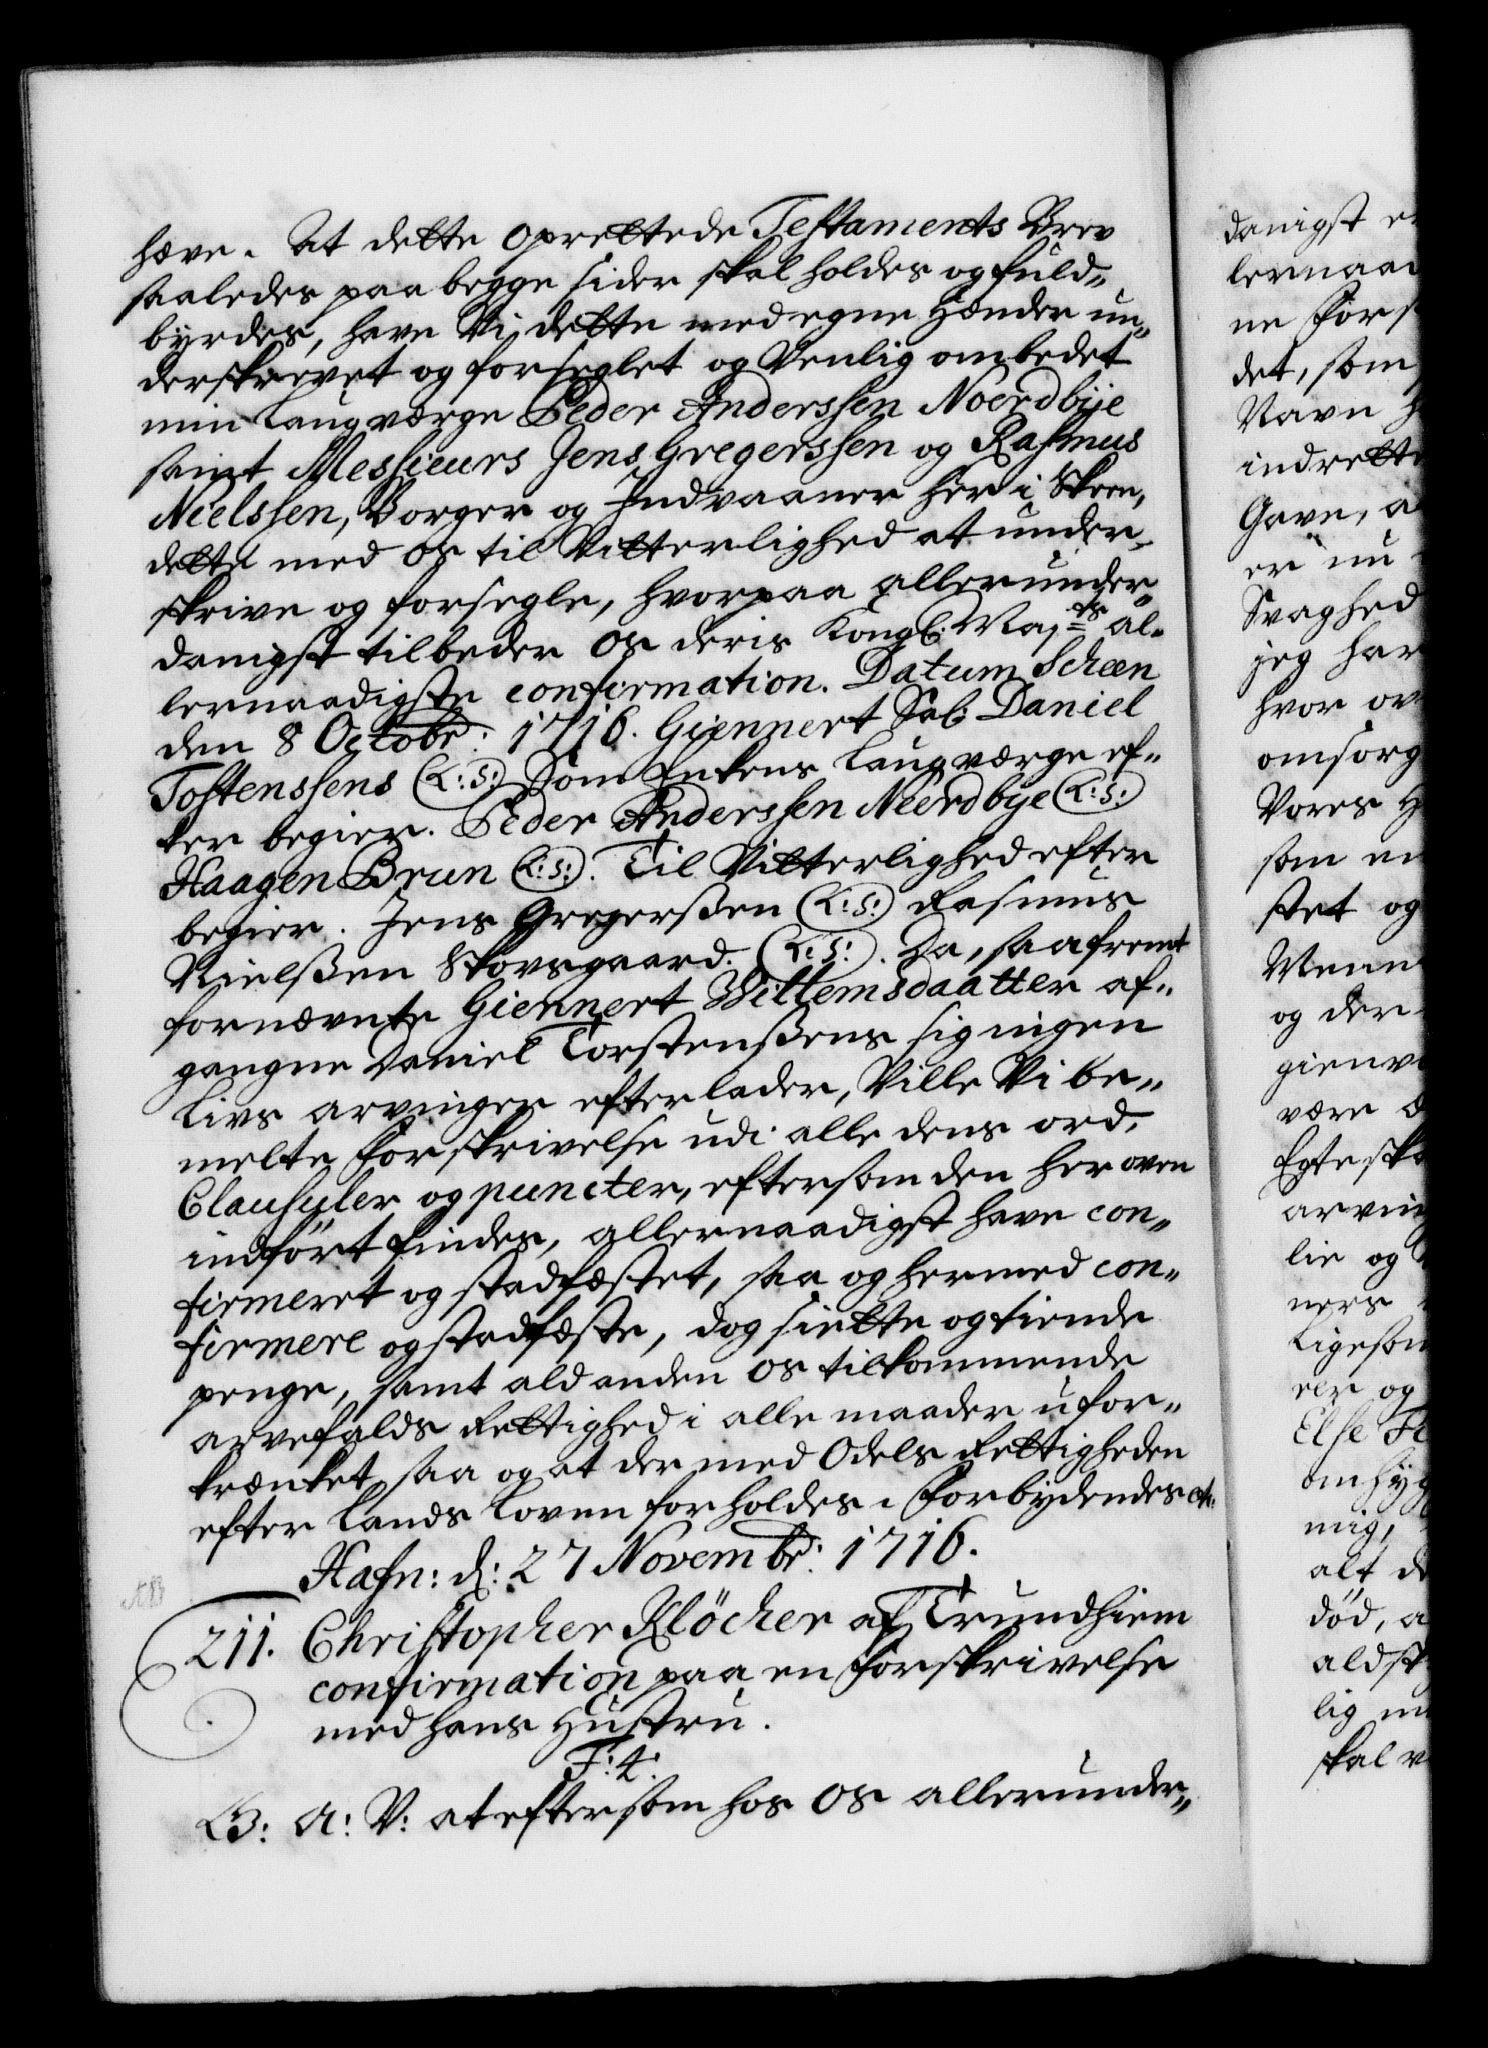 hæve. At dette oprettede Testaments Brev
saaledes paa begge sider skal holdes og fuld„
byrdes, have Vi dette med egne Hænder un„
derskrevet og forseglet og Venlig ombedet
min Laugværge Peder Anderssen Noerdbÿe
samt Messieurs Jens Gregerssen og Rasmus
Nielssen, Borger og Indvaaner her i Skeen,
dette med os til Vitterlighed at under„
skrive og forsegle, hvorpaa allerunder„
danigst tilbeder os deris Kongl: Maj:ts al„
lernaadigste confirmation. Datum Scheen
den 8 Octobr: 1716. Giennert Sal: Daniel
Tostenssens (L:S:) Som Enkens Laugværge ef„
ter begier. Peder Anderssen Neerdbye (L:S:)
Haagen Brun (L:S:). Til Vitterlighed efter
begier. Jens Gregerssen (L:S:) Rasmus
Nielssen Skovsgaard. (L:S:). Da, saafremt
fornævnte Giennert Willemsdaatter af„
gangne Daniel Torstenssens sig ingen
Livs arvinger efterlader, Ville Vi be„
melte Forskrivelse udi alle dens ord,
Clausuler og puncter, eftersom den her oven
indført findes, allernaadigst have con„
firmeret og stadfæstet, saa og hermed con„
firmere og stadfæste, dog siette og tiende
penge, samt ald anden os tilkommende
arvefalds Rettighed i alle maader ufor„
krænket, saa og at der med Odels Rettigheden
efter Lands Loven forholdes. Forbydendes etc:
Hafn: d: 27 Novembr: 1716.
211. Christopher Klöcker af Trundhiem
confirmation paa en Forskrivelse
med hans Hustru.
F: 4:
G: A: V: at eftersom hos os allerunder„
danigst
lernaad
ne Fors
det, som
Navn
indrette
Gave,
er nu
Svaghed
jeg har
hvor
omsorg
Vores
som
stet og
og der
være
arvin
lie og
ners
Ligesom
og
Else
mig,
alt
død, a
aldst
lig
skal